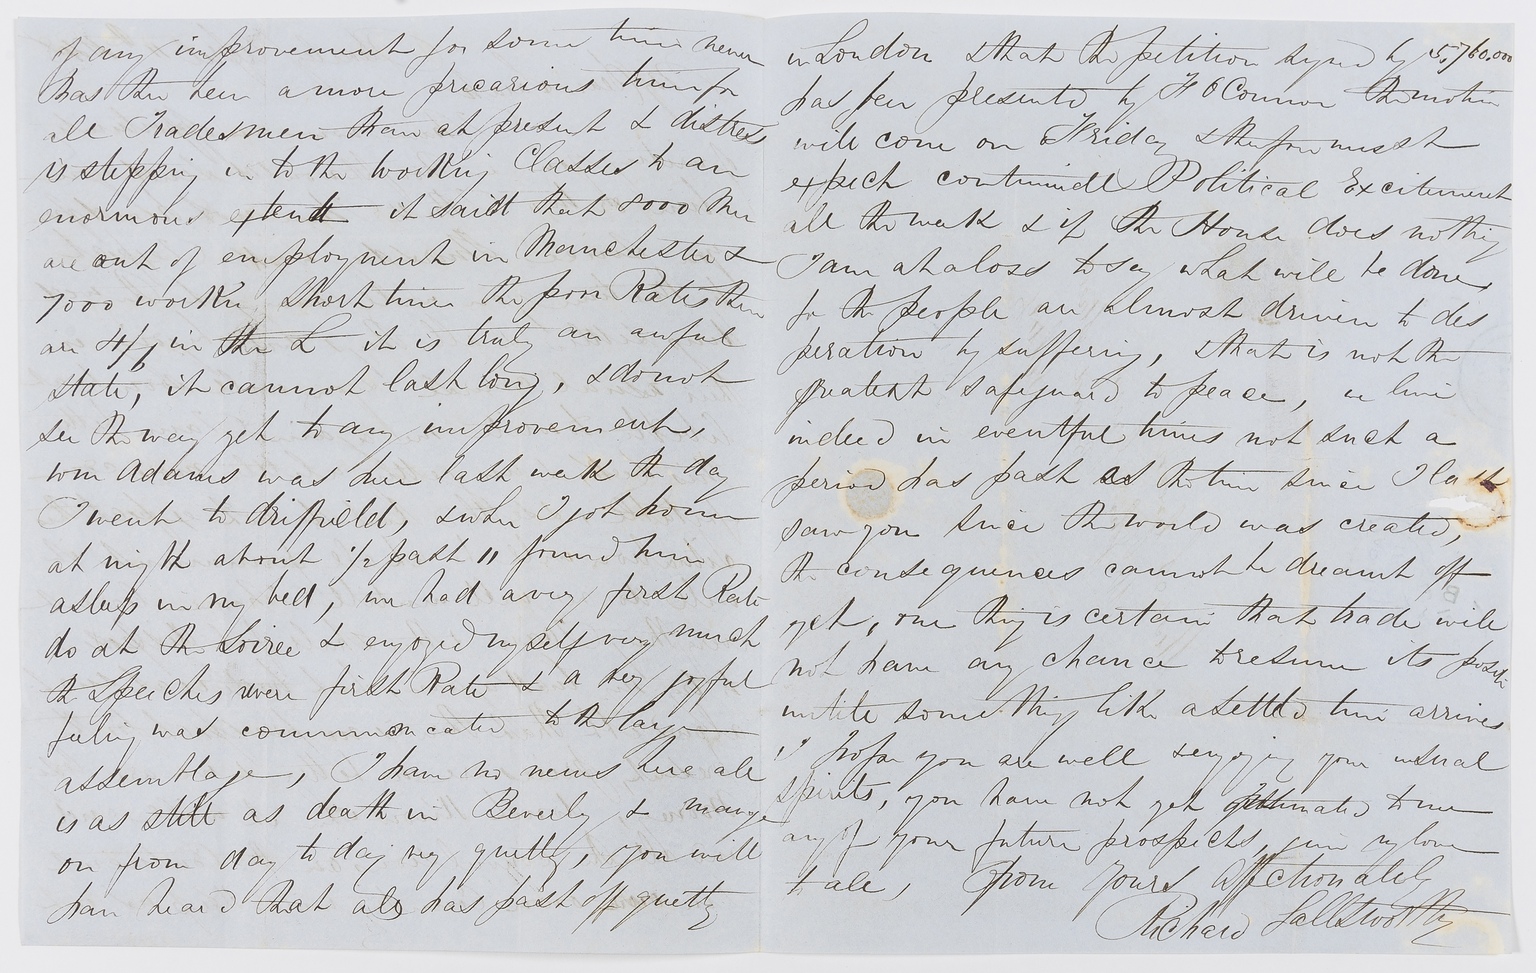 of any improvement for some time never
has ther been a more precarious time for
all Tradesmen than at present & distress
is stepping in to the working Classes to an
enormous extent it said that 8000 Men
are out of employment in Manchester &
7000 workin short time the poor Rates then
are 4/ in the £ it is truly an awful
state, it cannot last long, & do not
see the way yet to any improvement,
Wm Adams was here last week the day
I went to driffield, & when I got home
at night about 1/2 past 11 found him
asleep in my bed, we had a very first Rate
do at the Soiree & enjoyed myself very much
the Speeches were first Rate & a very joyful
feeling was communicated to the large
assemblage, I have no news here all
is as still as death in Beverly & mange
on from day to day very quetly, you will
have heard that all has past off quetly
in London & that the petition synd by 5,760,000
has been presented by F O Connor the motion
will come on Friday & therfore must
expect continuall Political Excitement
all the week & if the House does nothing
I am at a loss to say what will be done,
for the people are almost driven to des
peration by suffering, & that is not the
greatest safeguard to peace, we live
indeed in eventful times not such a
period has past as the time since I last
saw you since the world was created,
the consequences cannot be dreamt off
yet, one thing is certain that trade will
not have any chance to resume its
untile something like a settled time arrives
I hope you are well & enjoying your usual
spirits, you have not yet intimated to me
any of your future prospects, give my love
to all, From Yours Affectionately
Richard Sallsworthy